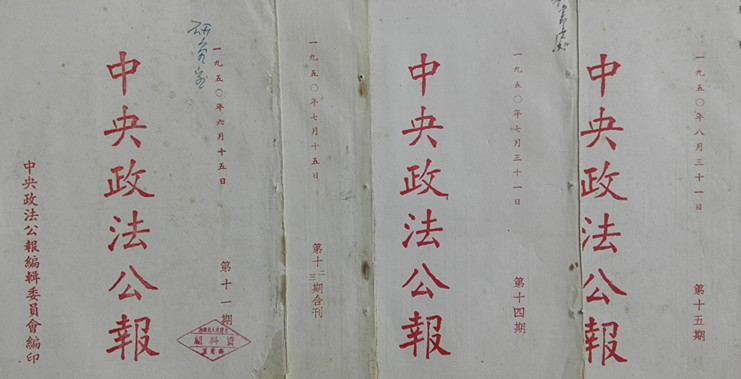 中央政法公報
一九五〇年六月十五日
第十一期
中央政法公報編輯委員會編印
研究室
資料組
一九五〇年七月十五日
第十二三期合刊
中央政法公報
一九五〇年七月三十一日
第十四期
中央政法公報
一九五〇年八月三十一日
第十五期